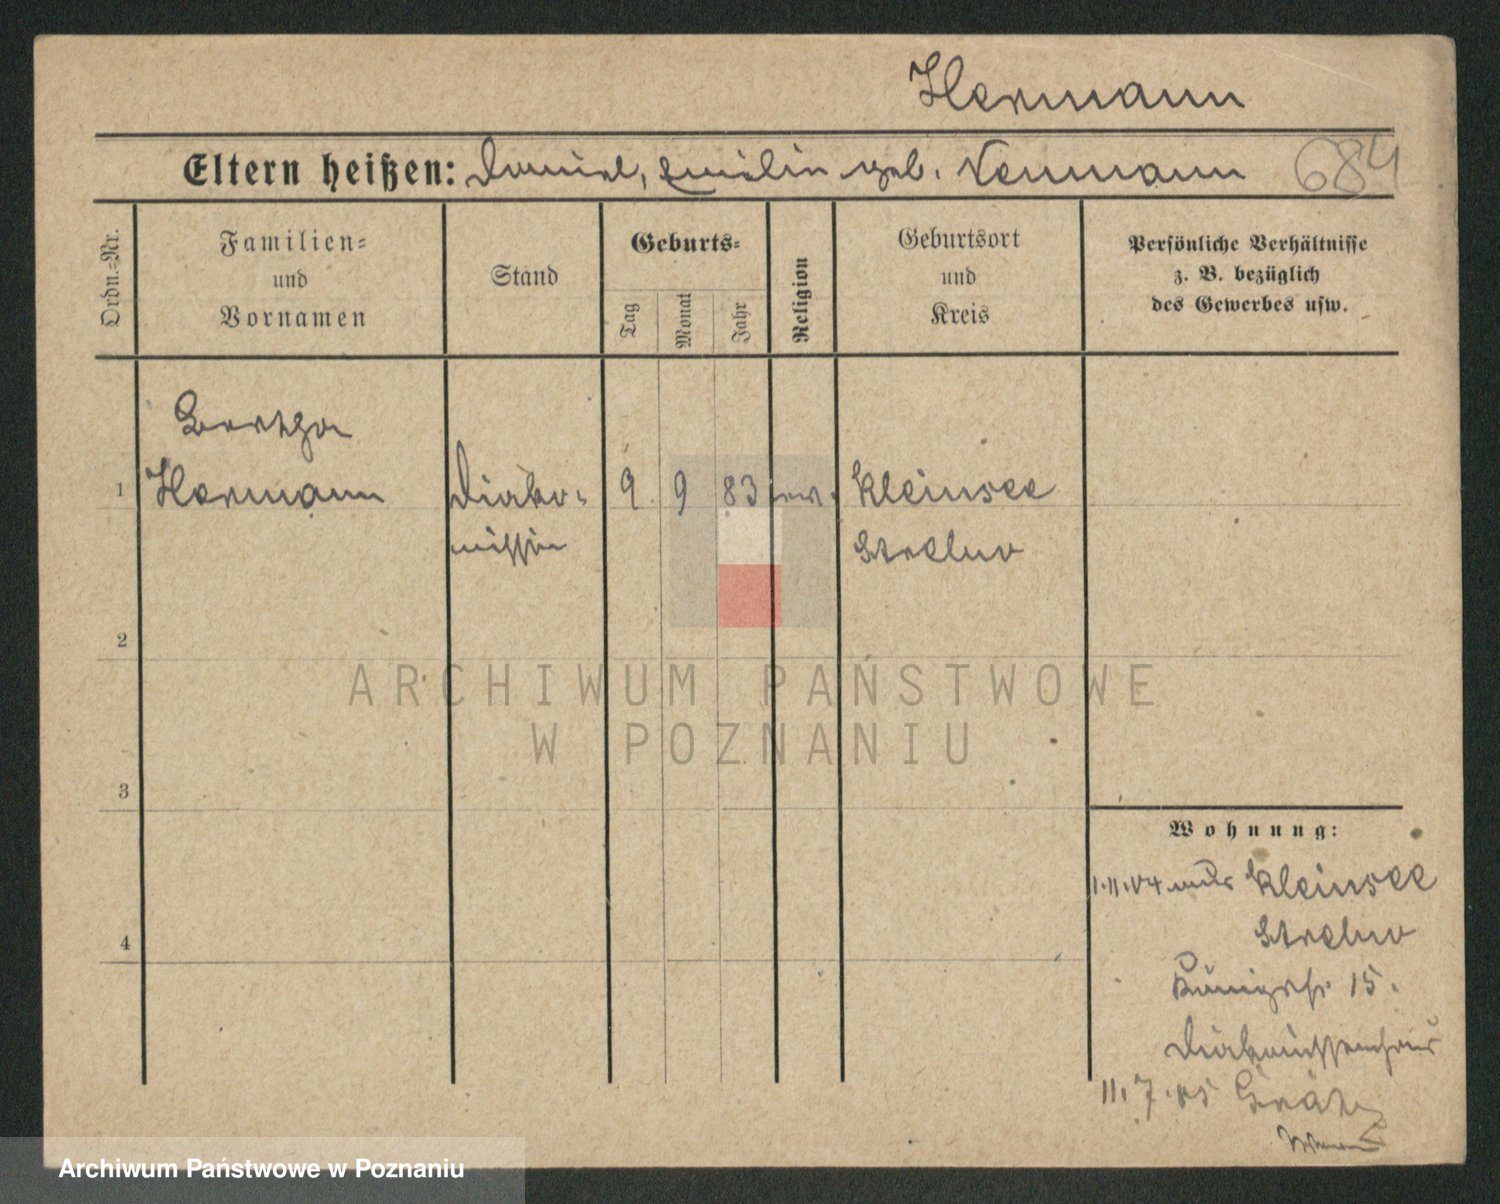 Hermann
Eltern heißen: Daniel, Emilie geb. Neumann 684
Ordn.-Nr.
Familien-
und
Vornamen
Stand
Geburts-
Tag
Monat
Jahr
Religion
Geburtsort
und
Kreis
Persönliche Verhältnisse
z. B. bezüglich
des Gewerbes usw.
Bertha
1 Hermann Diako- 9. 9 83 ev. Kleinsee
nissin Strelno
2
3
4
Wohnung:
1.11.04 aus Kleinsee
Strelno
Königstr. 15.
Diakonissenhaus
11.7.05 Grätz
ARCHIWUM PAŃSTWOWE
W POZNANIU
Archiwum Państwowe w Poznaniu